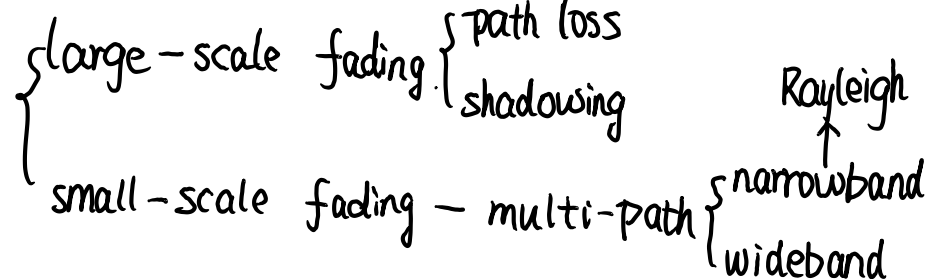 large-scale fading
path loss
shadowing
Rayleigh
small-scale fading - multi-path
narrowband
wideband